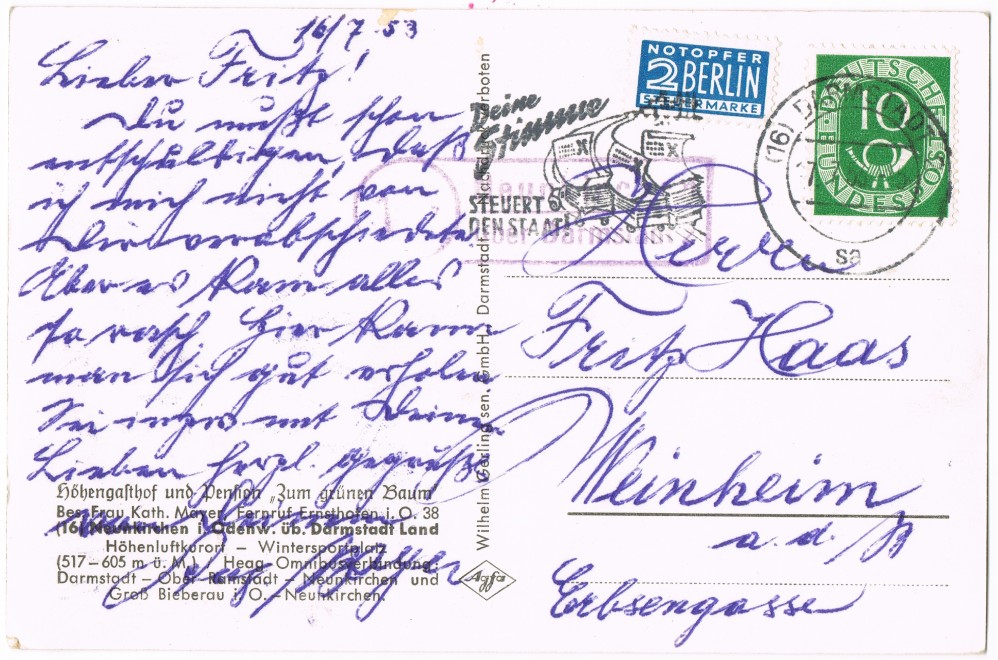 16/7 53
Lieber Fritz!
Du mußt schon
entschuldigen, daß
ich mich nicht von
Dir verabschiedete
Aber es kam alles
so rasch. Hier kann
man sich gut erholen
Sei mit Deinen
Lieben herzl. gegrüßt
Höhengasthof und Pension „Zum grünen Baum"
Bes. Frau Kath. Mayer, Fernruf Ernsthofen i. O. 38
(16) Neunkirchen i. Odenw. üb. Darmstadt Land
Höhenluftkurort – Wintersportplatz
(517–605 m ü. M.) Heag Omnibusverbindung
Darmstadt – Ober Ramstadt – Neunkirchen und
Groß Bieberau i. O. – Neunkirchen.
Wilhelm Gerlingsen, GmbH., Darmstadt Nachdruck verboten
Agfa
Deine
Stimme
STEUERT
DEN STAAT!
über Darmstadt
NOTOPFER
2 BERLIN
STEUERMARKE
DEUTSCHE
BUNDESPOST
10
(16) DARMSTADT
Herrn
Fritz Haas
Weinheim
a. d. B
Erbsengasse